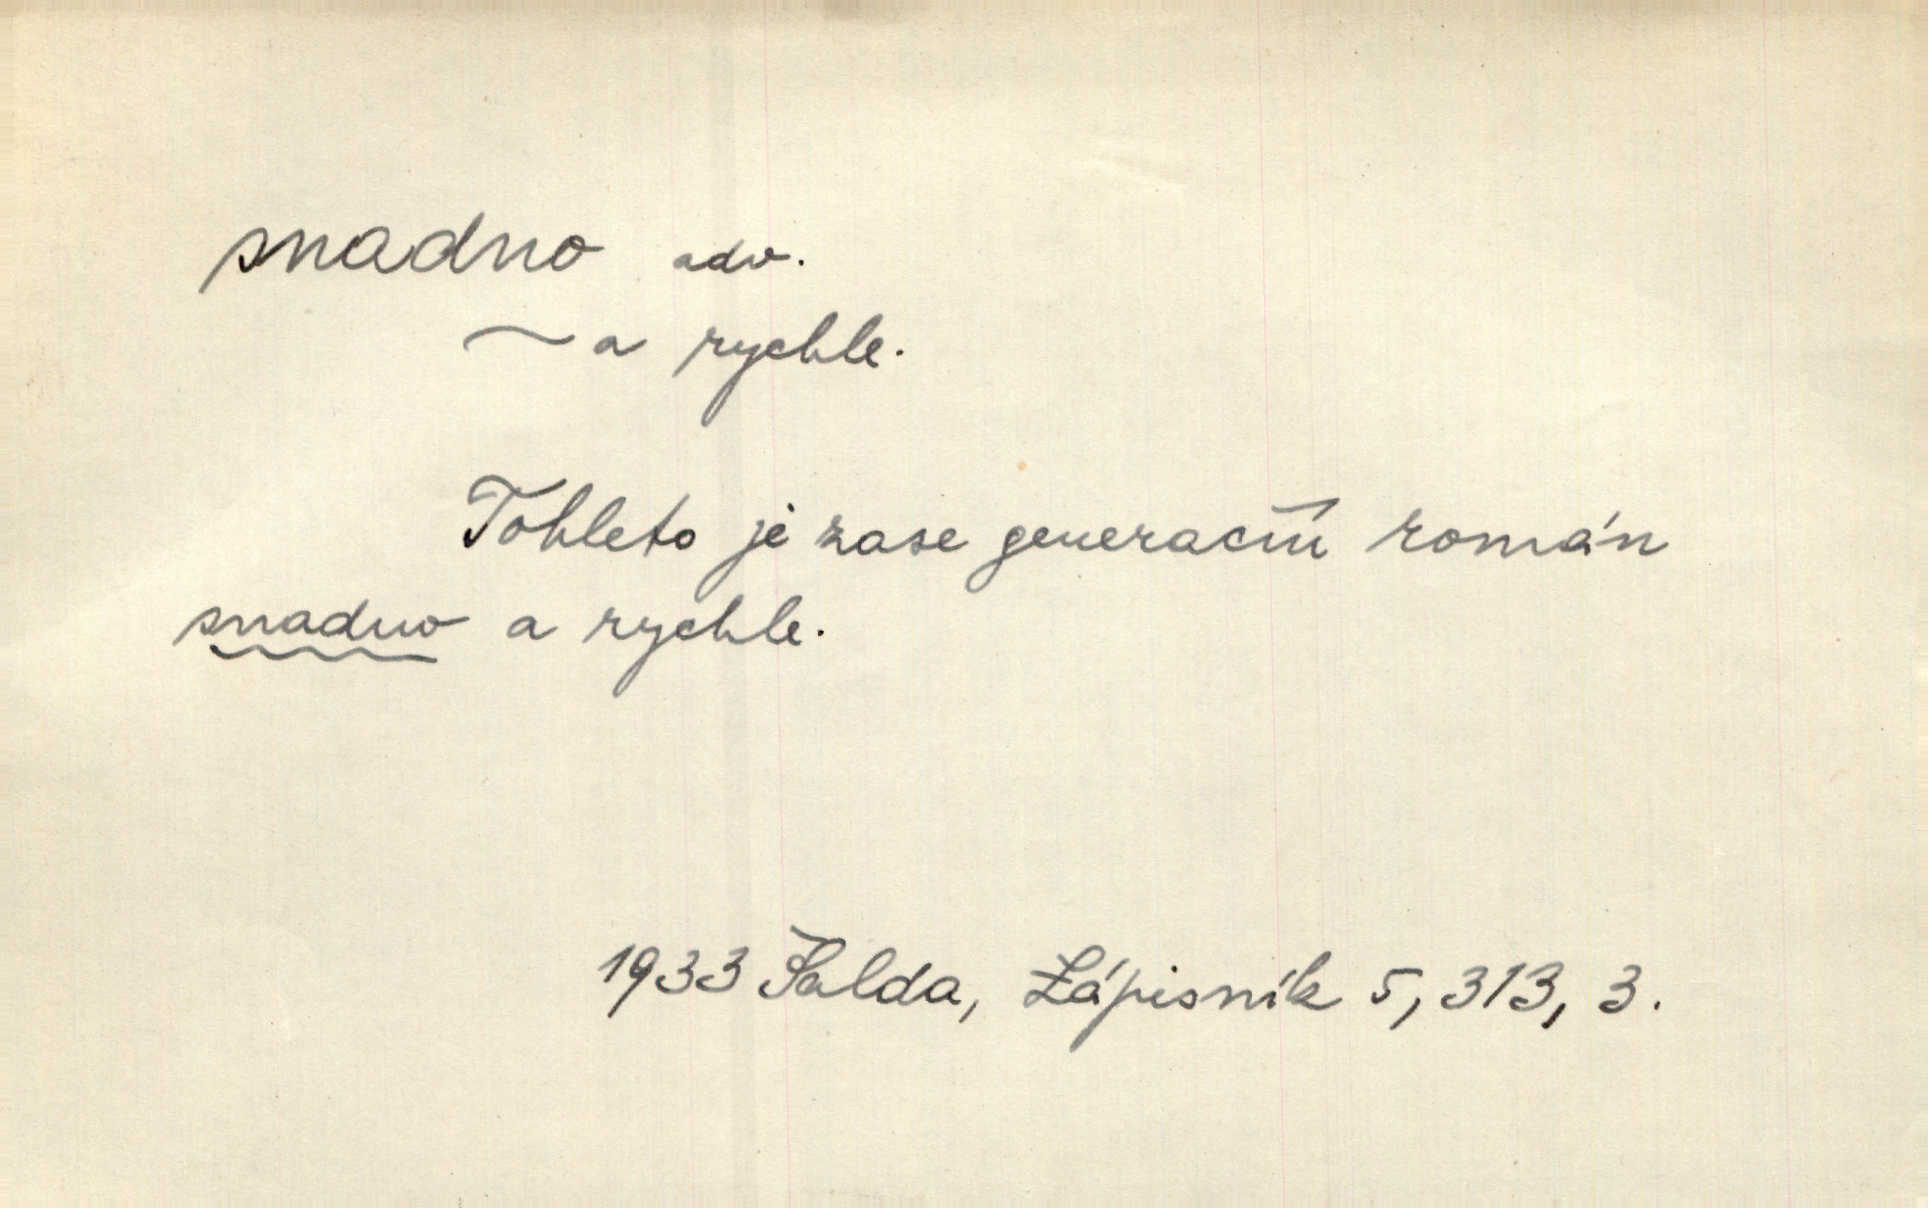 snadno adv.
~ a rychle.
Tohleto je zase generační román
snadno a rychle.
1933 Šalda, Zápisník 5, 313, 3.